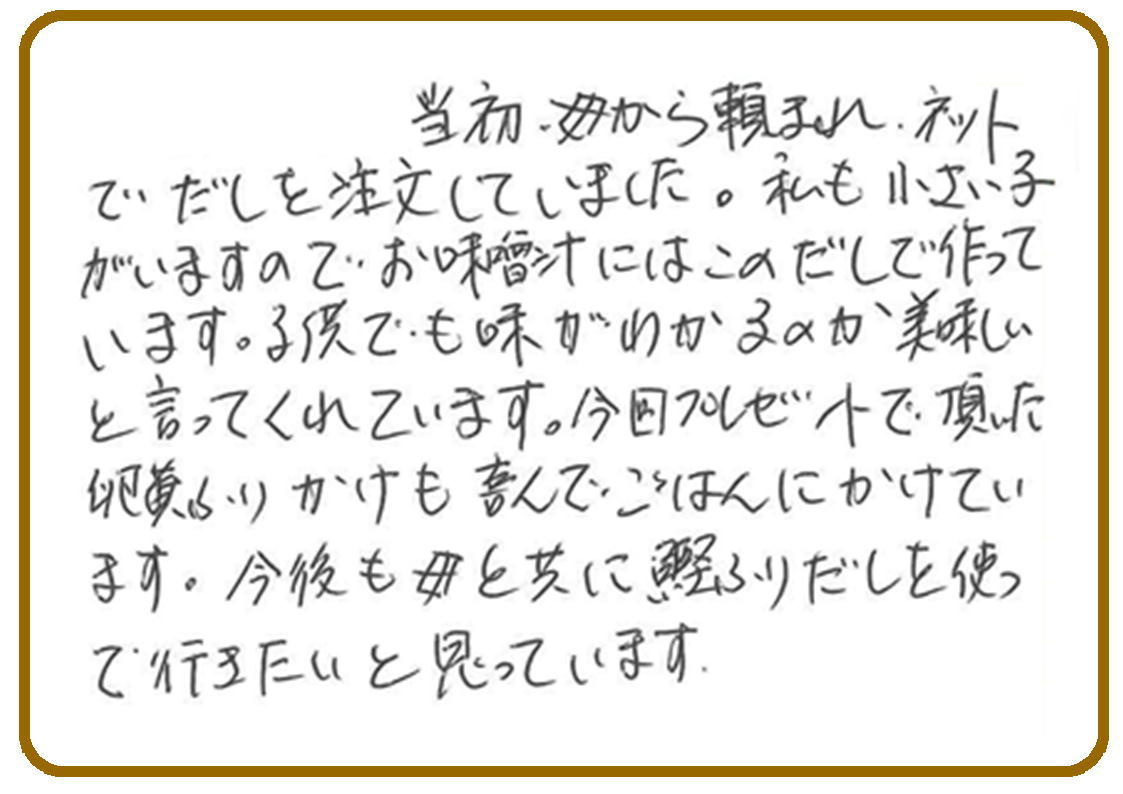 当初、母から頼まれ、ネット
でだしを注文していました。私も小さい子
がいますので、お味噌汁にはこのだしで作って
います。子供でも味がわかるのか美味しい
と言ってくれています。今回プレゼントで頂いた
卵黄ふりかけも喜んでごはんにかけてい
ます。今後も母と共に鰹ふりだしを使っ
て行きたいと思っています.